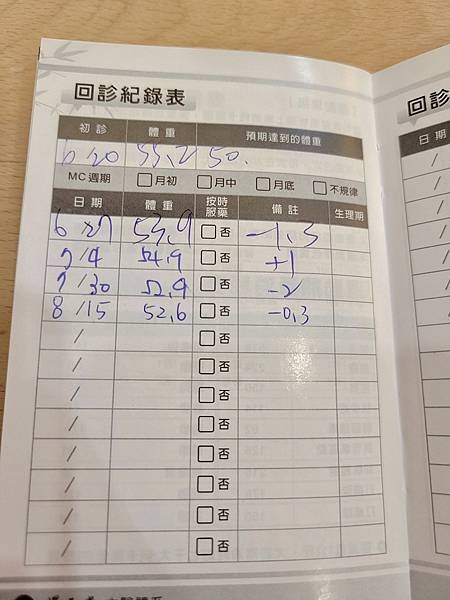 回診紀錄表
初診 體重 預期達到的體重
6/20 55.2 50.
MC週期 □月初 □月中 □月底 □不規律
日期 體重 按時服藥 備註 生理期
6/27 53.9 □否 -1.3
7/9 54.9 □否 +1
7/30 52.9 □否 -2
8/15 52.6 □否 -0.3
/ □否
/ □否
/ □否
/ □否
/ □否
/ □否
/ □否
/ □否
回診
日期
/
/
/
/